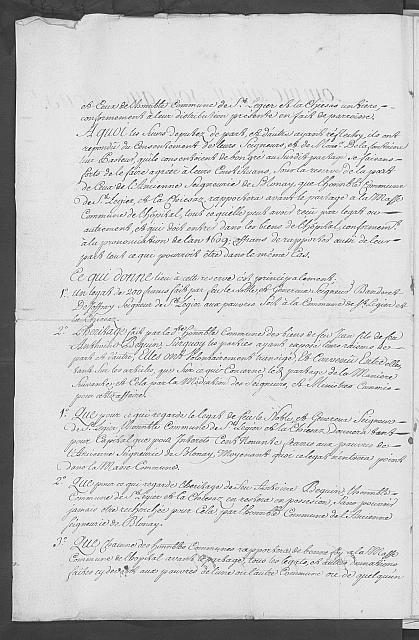 et Ceux de l'honnble Commune de St. Legier et la Chiesaz entiere,
conformement à leur distribution presente en fait de paroisse.
A quoi les Sieurs deputez de part, et d'autre ayant reflechy, ils ont
repondu du Consentement de leurs Seigneurs, et de Monsr. De la fontaine
leur Pasteur, qu'ils consentoient de bon gré au susdit partage, se faisans
forts de le faire agréer à leurs Constituans. Sous la reserve de la part
de Ceux de l'Ancienne Seigneurie de Blonay, que l'honnble Commune
de St. Legier, et la Chiesaz, rapportera avant le partage à la Masse
Commune de l'hôpital, tout ce qu'elle peut avoir reçu par legat ou
autrement, et qui doit entrer dans les biens de l'hôpital, conformemt
à la prononciation de l'an 1609. Offrans de rapporter aussi de leur
part tout ce que pourroit être dans le même Cas.
Ce qui donne lieu à cette reserve est principalement.
1°. Un legat de 200 francs fait par feu le Noble, et Genereux Seigneur Banderet
De Joffrey Seigneur de St. Legier aux pauvres soit à la Commune de St. Legier et
la Chiesaz.
2°. L'heritage fait par la dte. honnble Commune des biens de feu Jean fils de feu
Anthoine Beguin. Surquoy les parties ayant exposé leurs raisons de
part et d'autre, Elles ont volontairement transigé, Et Convenu Entre elles
tant sur les articles, que sur ce qui Concerne le partage de la Maniere
Suivante, et Cela par la Mediation des Seigneurs, et Ministre Commis
pour cette affaire.
1°. Que pour ce qui regarde le legat de feu le Noble, et Genereux Seigneur
de St. Legier, l'honnble Commune de St. Legier et la Chiesaz, donnera tant
pour Capital que pour Interêts Cent Nonante francs aux pauvres de
l'Ancienne Seigneurie de Blonay, Moyenant quoi ce legat n'entrera point
dans la Masse Commune.
2°. Que pour ce qui regarde l'heritage de Jean Anthoine Beguin, l'honnble
Commune de St. Legier et la Chiesaz, en restera en possession, Sans pouvoir
jamais être recherchée pour Cela, par l'honnble Commune de l'Ancienne
Seigneurie de Blonay.
3°. Que Chacune des honnbles Communes rapportera de bonne foy à la Masse
Commune de l'hôpital avant le partage, tous les legats, et autres donnations
faites cy devant aux pauvres de l'une ou l'autre Commune ou de quelqu'un